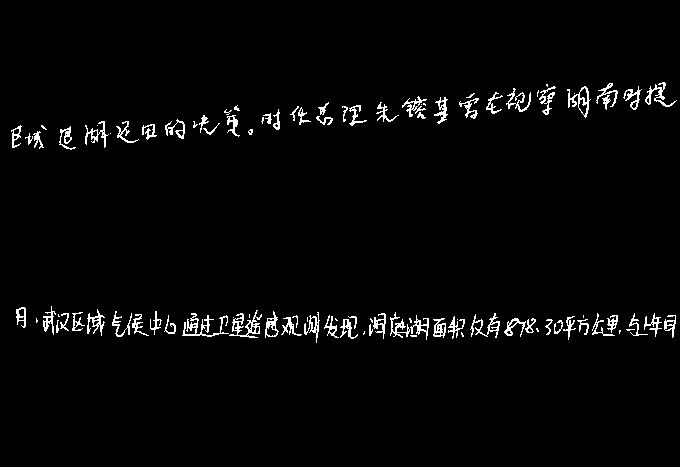 区域退湖还田的决策。时任总理朱镕基曾在视察湖南时提
月,武汉区域气候中心通过卫星遥感观测发现,洞庭湖面积仅有878.30平方公里,与上年同